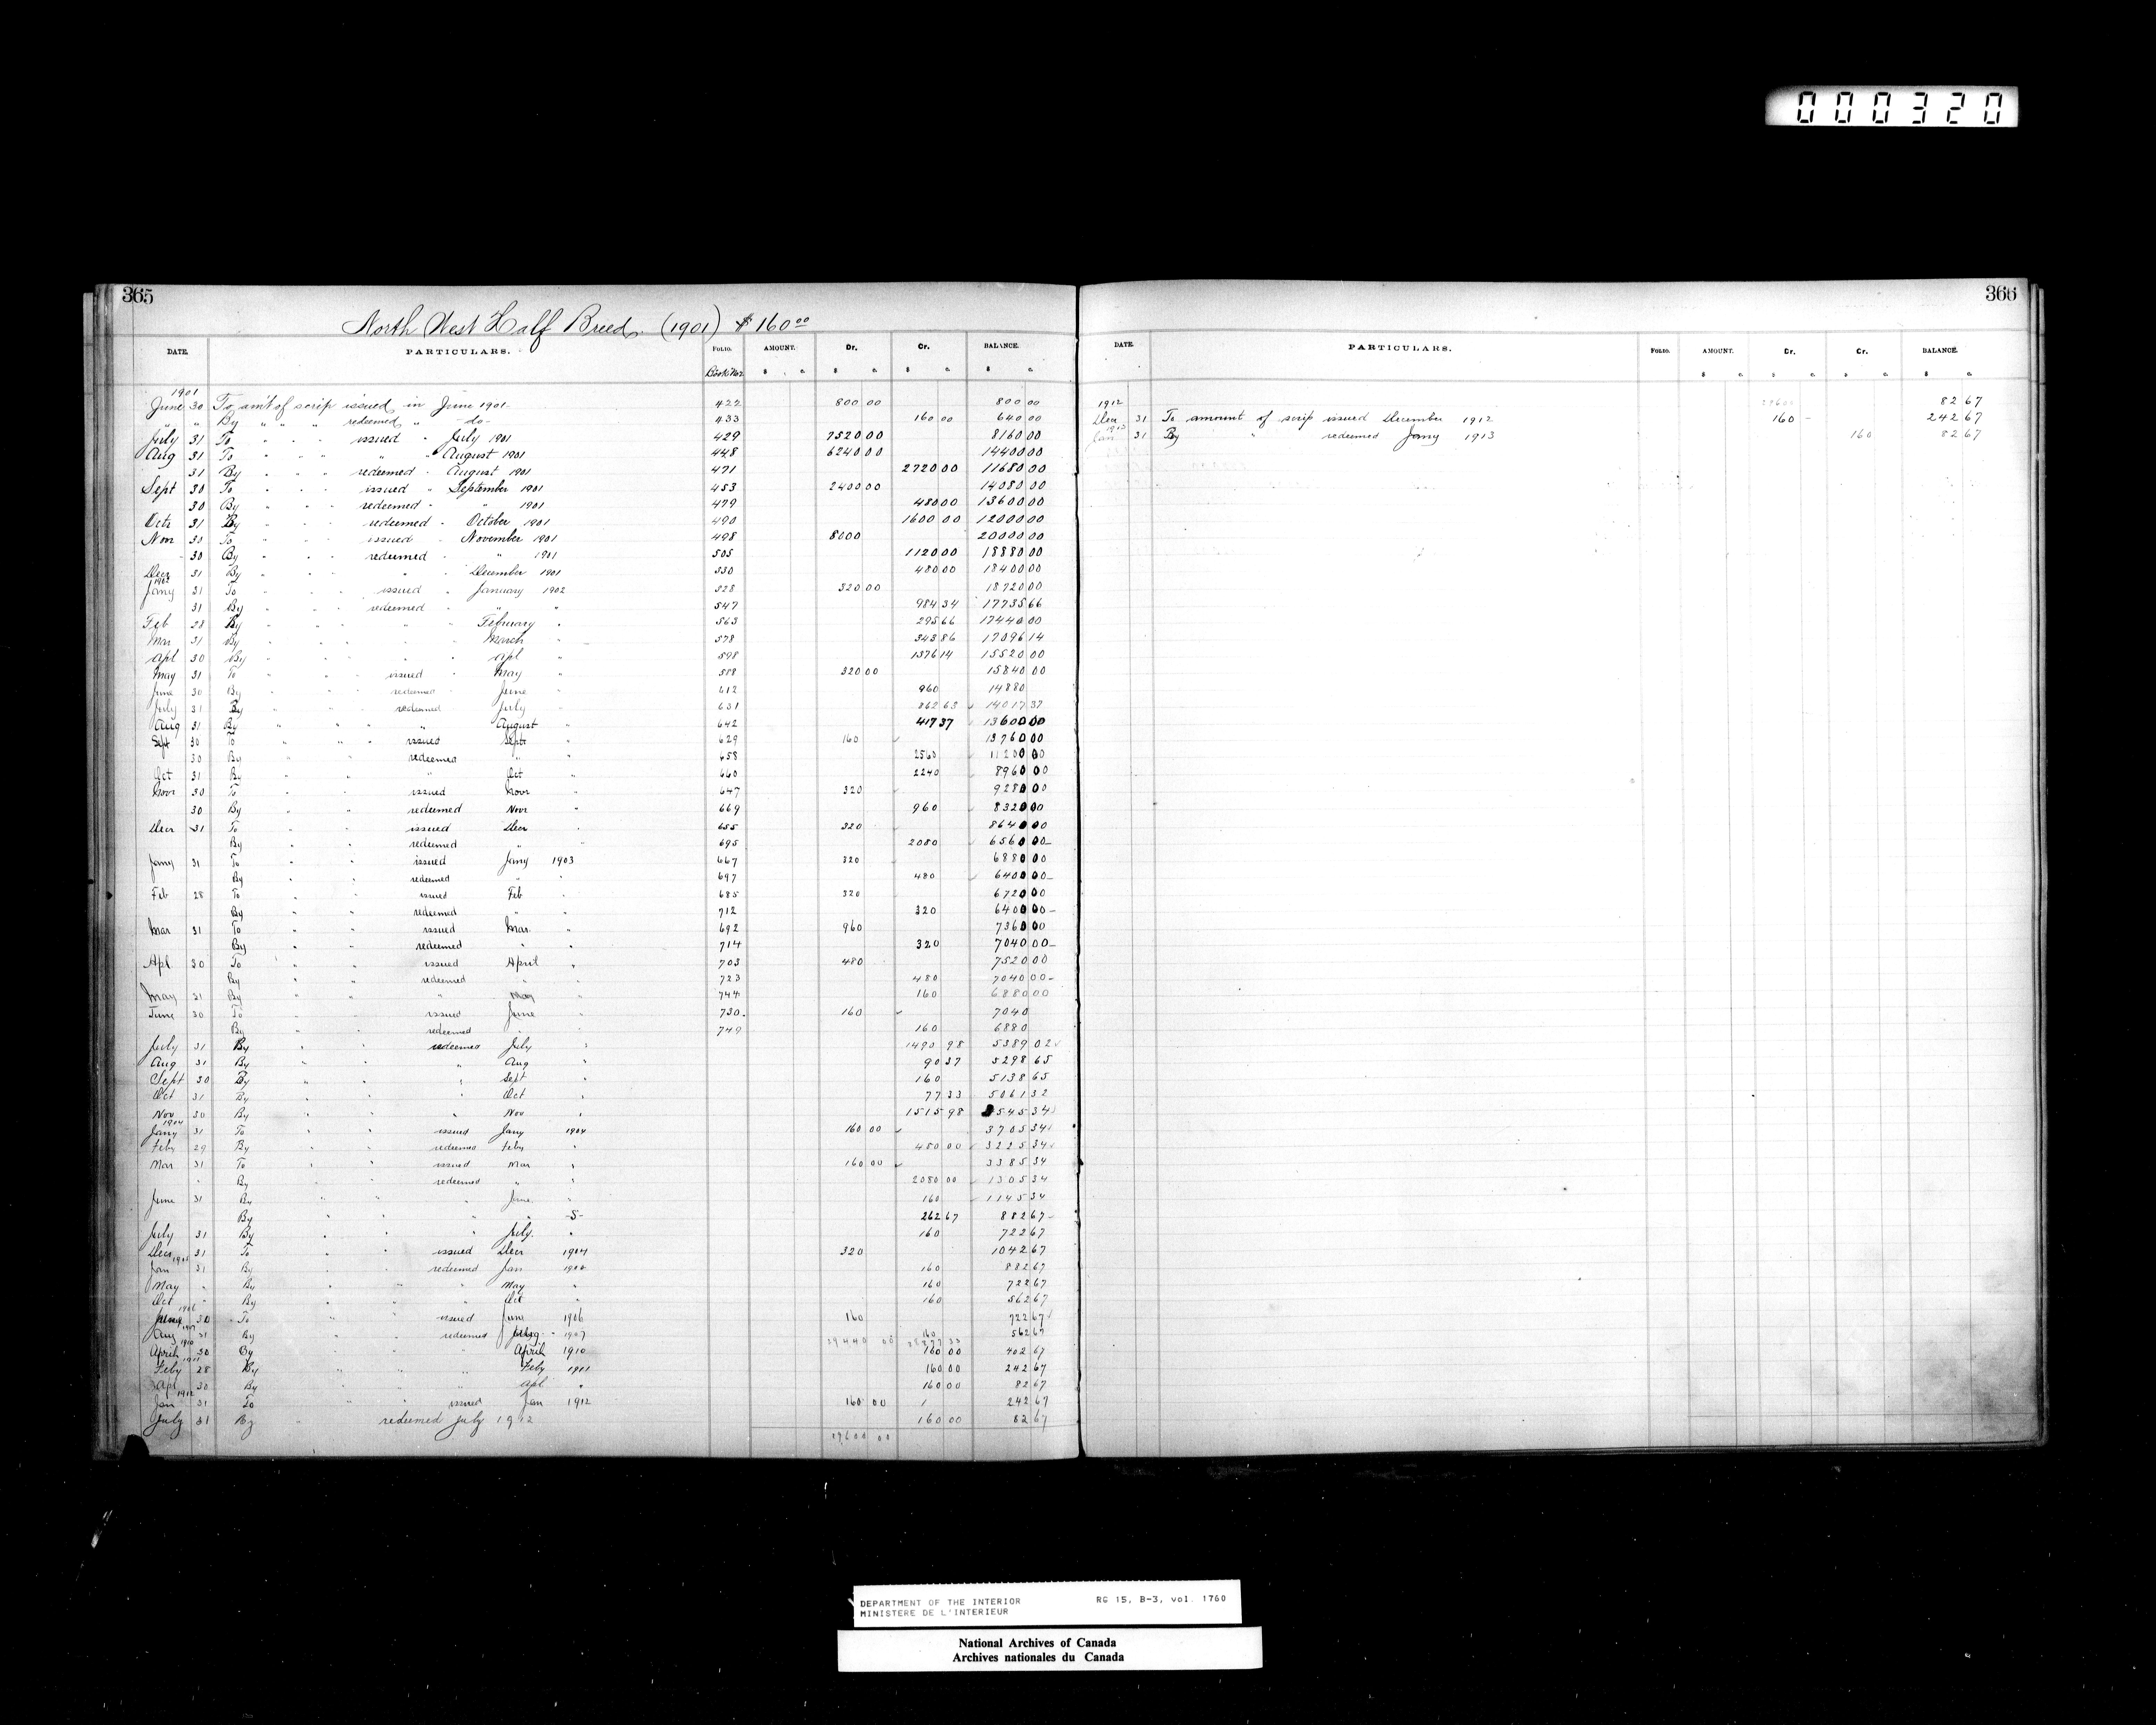 000320
365
North West Half Breeds (1901) $160.00
DATE. PARTICULARS. FOLIO. AMOUNT. Dr. Cr. BALANCE.
Book No2 $ c. $ c. $ c. $ c.
1901
June 30 To am't of scrip issued in June 1901 422 800 00 800 00
" " By " " " redeemed " do- 433 160 00 640 00
July 31 To " " " issued " July 1901 429 7520 00 8160 00
Aug 31 To " " " " " August 1901 448 6240 00 14400 00
31 By " " " redeemed " August 1901 471 2720 00 11680 00
Sept 30 To " " " issued " September 1901 453 2400 00 14080 00
30 By " " " redeemed " " 1901 479 480 00 13600 00
Octr 31 By " " " redeemed " October 1901 490 1600 00 12000 00
Nov 30 To " " " issued " November 1901 498 8000 20000 00
30 By " " " redeemed " " 1901 505 1120 00 18880 00
Decr 31 By " " " " " December 1901 530 480 00 18400 00
1902
Jany 31 To " " " issued " January 1902 528 320 00 18720 00
31 By " " " redeemed " " " 547 984 34 17735 66
Feb 28 By " " " " " February " 563 295 66 17440 00
Mar 31 By " " " " " March " 578 343 86 17096 14
Apl 30 By " " " " " Apl " 598 1576 14 15520 00
May 31 To " " " issued " May " 588 320 00 15840 00
June 30 By " " " redeemed " June " 612 960 14880
July 31 By " " " redeemed July " 631 862 63 14017 37
Aug 31 By " " " " August " 642 417 37 13600 00
Sept 30 To " " " issued Septr " 629 160 13760 00
30 By " " redeemed " " 658 2560 11200 00
Oct 31 By " " " Oct " 660 2240 8960 00
Novr 30 To " " issued Novr " 647 320 9280 00
30 By " " redeemed Novr " 669 960 8320 00
Decr 31 To " " issued Decr " 655 320 8640 00
By " " redeemed " " 695 2080 6560 00
Jany 31 To " " issued Jany 1903 667 320 6880 00
By " " redeemed " " 697 480 6400 00
Feb 28 To " " issued Feb " 685 320 6720 00
By " " redeemed " " 712 320 6400 00
Mar 31 To " " issued Mar. " 692 960 7360 00
By " " redeemed " " 714 320 7040 00
Apl 30 To " " issued April " 703 480 7520 00
By " " redeemed " " 723 480 7040 00
May 31 By " " " May " 744 160 6880 00
June 30 To " " issued June " 730 160 7040
By " " redeemed " " 749 160 6880
July 31 By " " redeemed July " 1490 98 5389 02
Aug 31 By " " " Aug " 90 37 5298 65
Sept 30 By " " " Sept " 160 5138 65
Oct 31 By " " " Oct " 77 33 5061 32
Nov 30 By " " " Nov " 1515 98 3545 34
1904
Jany 31 To " " issued Jany 1904 160 00 3705 34
Feby 29 By " " redeemed Feby " 480 00 3225 34
Mar 31 To " " issued Mar " 160 00 3385 34
" By " " redeemed " " 2080 00 1305 34
June 31 By " " " June " 160 1145 34
By " " " " -S- 262 67 882 67
July 31 By " " " July " 160 722 67
Decr 31 To " " issued Decr 1904 320 1042 67
Jan 31 By " " redeemed Jan 160 882 67
May " By " " " May " 160 722 67
Oct " By " " " Oct " 160 562 67
1906
June 30 To " issued June 1906 160 722 67
1907
Aug 31 By " " redeemed Aug 1907 160 562 67
29440 00 28877 33
1910
April 30 By " " April 1910 160 00 402 67
1911
Feby 28 By " " " Feby 1911 160 00 242 67
Apl 30 By " " " Apl " 160 00 82 67
1912
Jan 31 To " " issued Jan 1912 160 00 242 67
July 31 By " redeemed July 1912 160 00 82 67
29600 00
366
DATE. PARTICULARS. FOLIO. AMOUNT. Dr. Cr. BALANCE.
$ c. $ c. $ c. $ c.
29600 82 67
1912
Decr 31 To amount of scrip issued December 1912 160 - 242 67
1913
Jan 31 By " redeemed Jany 1913 160 82 67
DEPARTMENT OF THE INTERIOR RG 15, B-3, vol. 1760
MINISTERE DE L'INTERIEUR
National Archives of Canada
Archives nationales du Canada